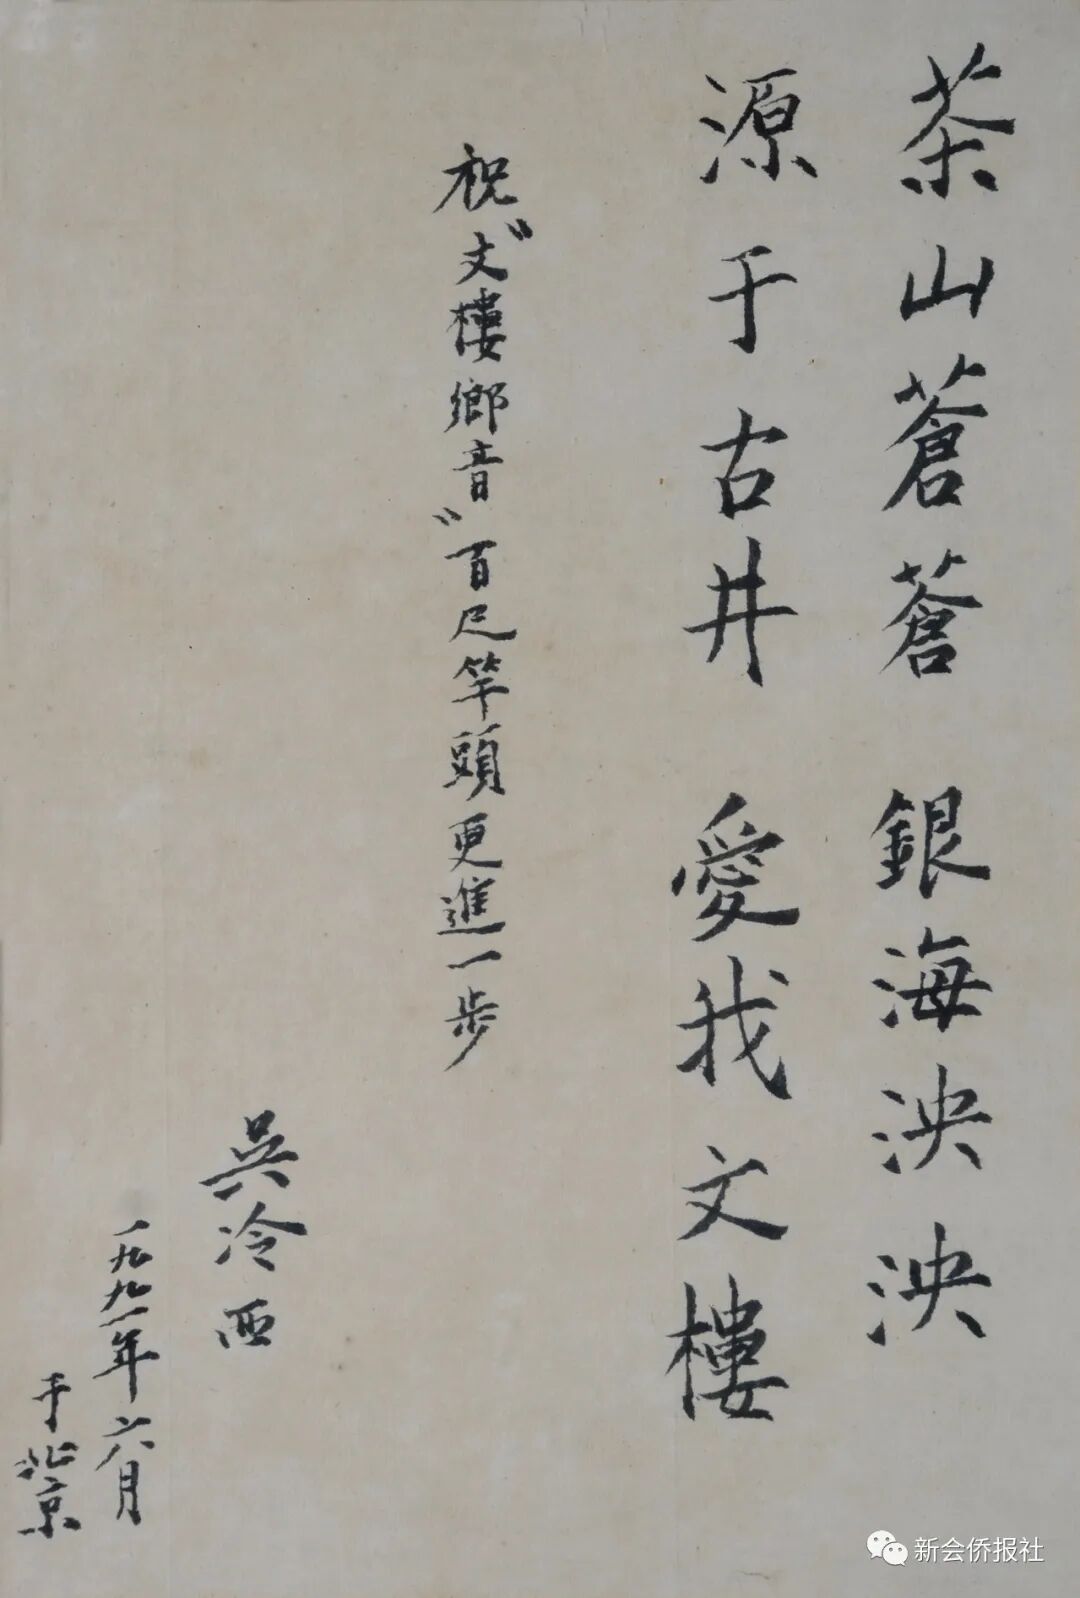 茶山蒼蒼 銀海泱泱
源于古井 愛我文樓
祝“文樓鄉音”百尺竿頭更進一步
吳冷西
一九九一年六月
于北京
新会侨报社